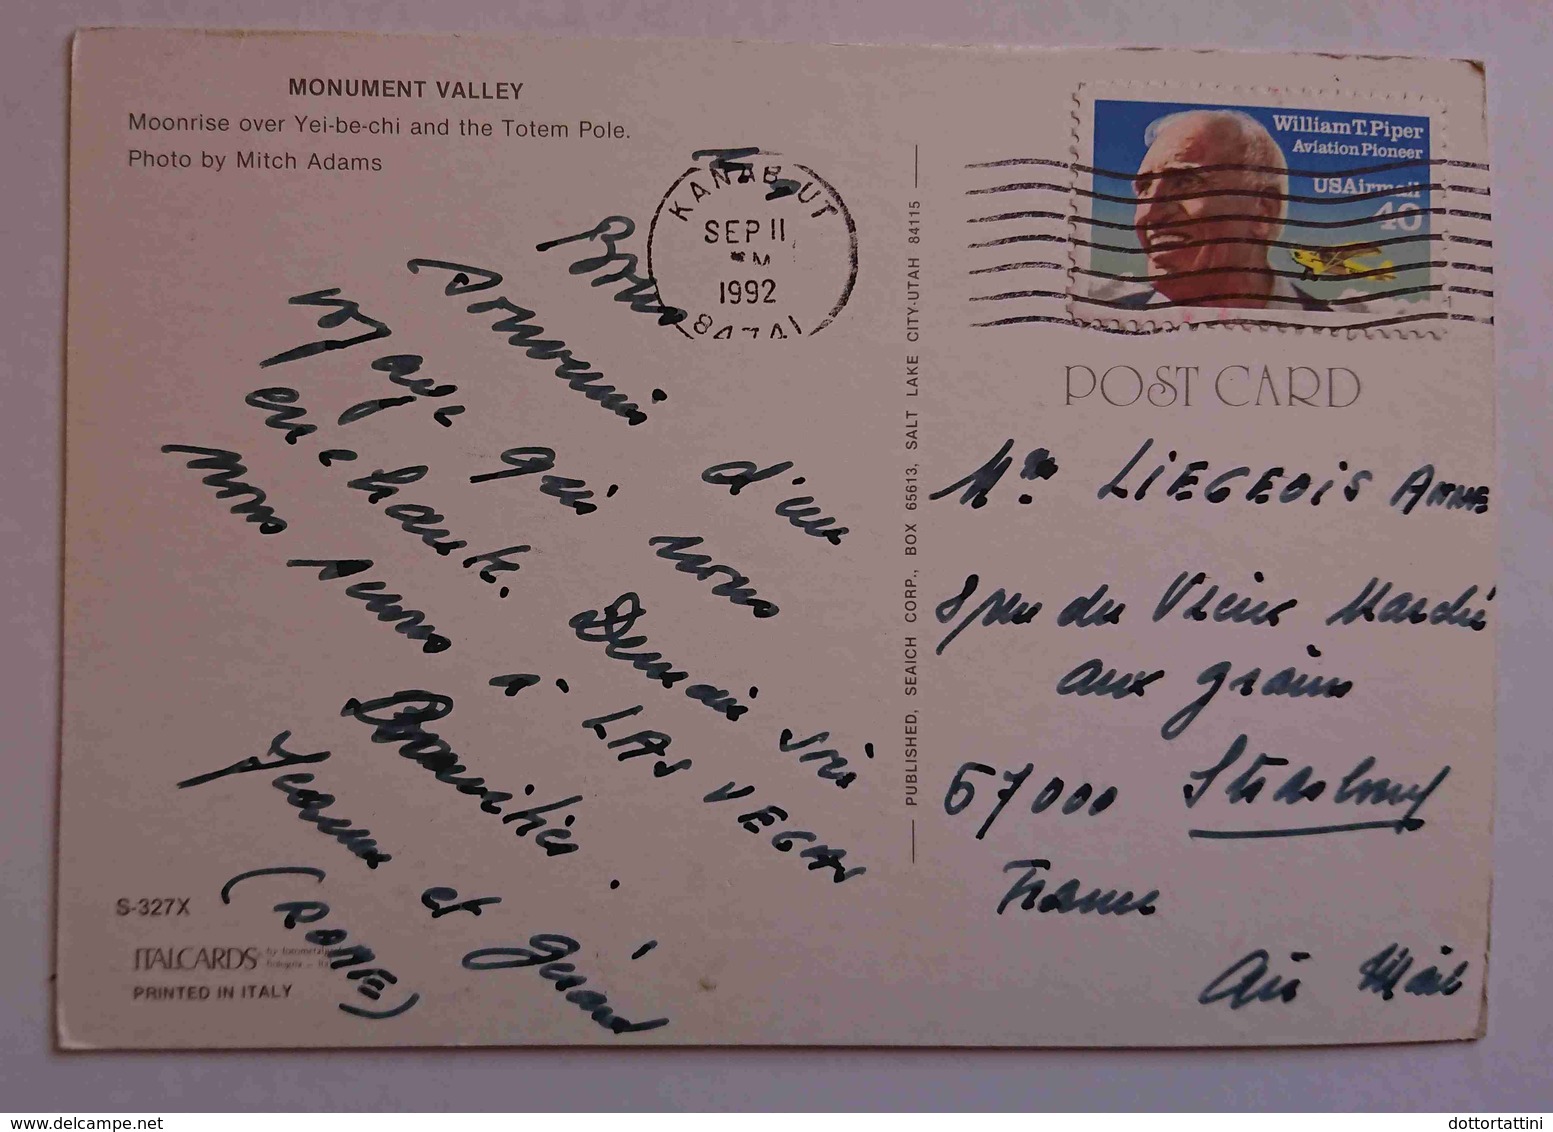 MONUMENT VALLEY
Moonrise over Yei-be-chi and the Totem Pole.
Photo by Mitch Adams
KANAB UT
SEP 11
1992
William T. Piper
Aviation Pioneer
USAirmail
40
POST CARD
Bons
souvenirs d'un
voyage qui nous
enchante. Demain soir
nous serons à LAS VEGAS
Amitiés.
et Gérard
(ROME)
S-327X
ITALCARDS
PRINTED IN ITALY
PUBLISHED, SEAICH CORP., BOX 65613, SALT LAKE CITY-UTAH 84115
Mme LIEGEOIS ANNE
rue du Vieux Marché
aux grains
67000 Strasbourg
France
Air Mail
www.delcampe.net
dottortattini